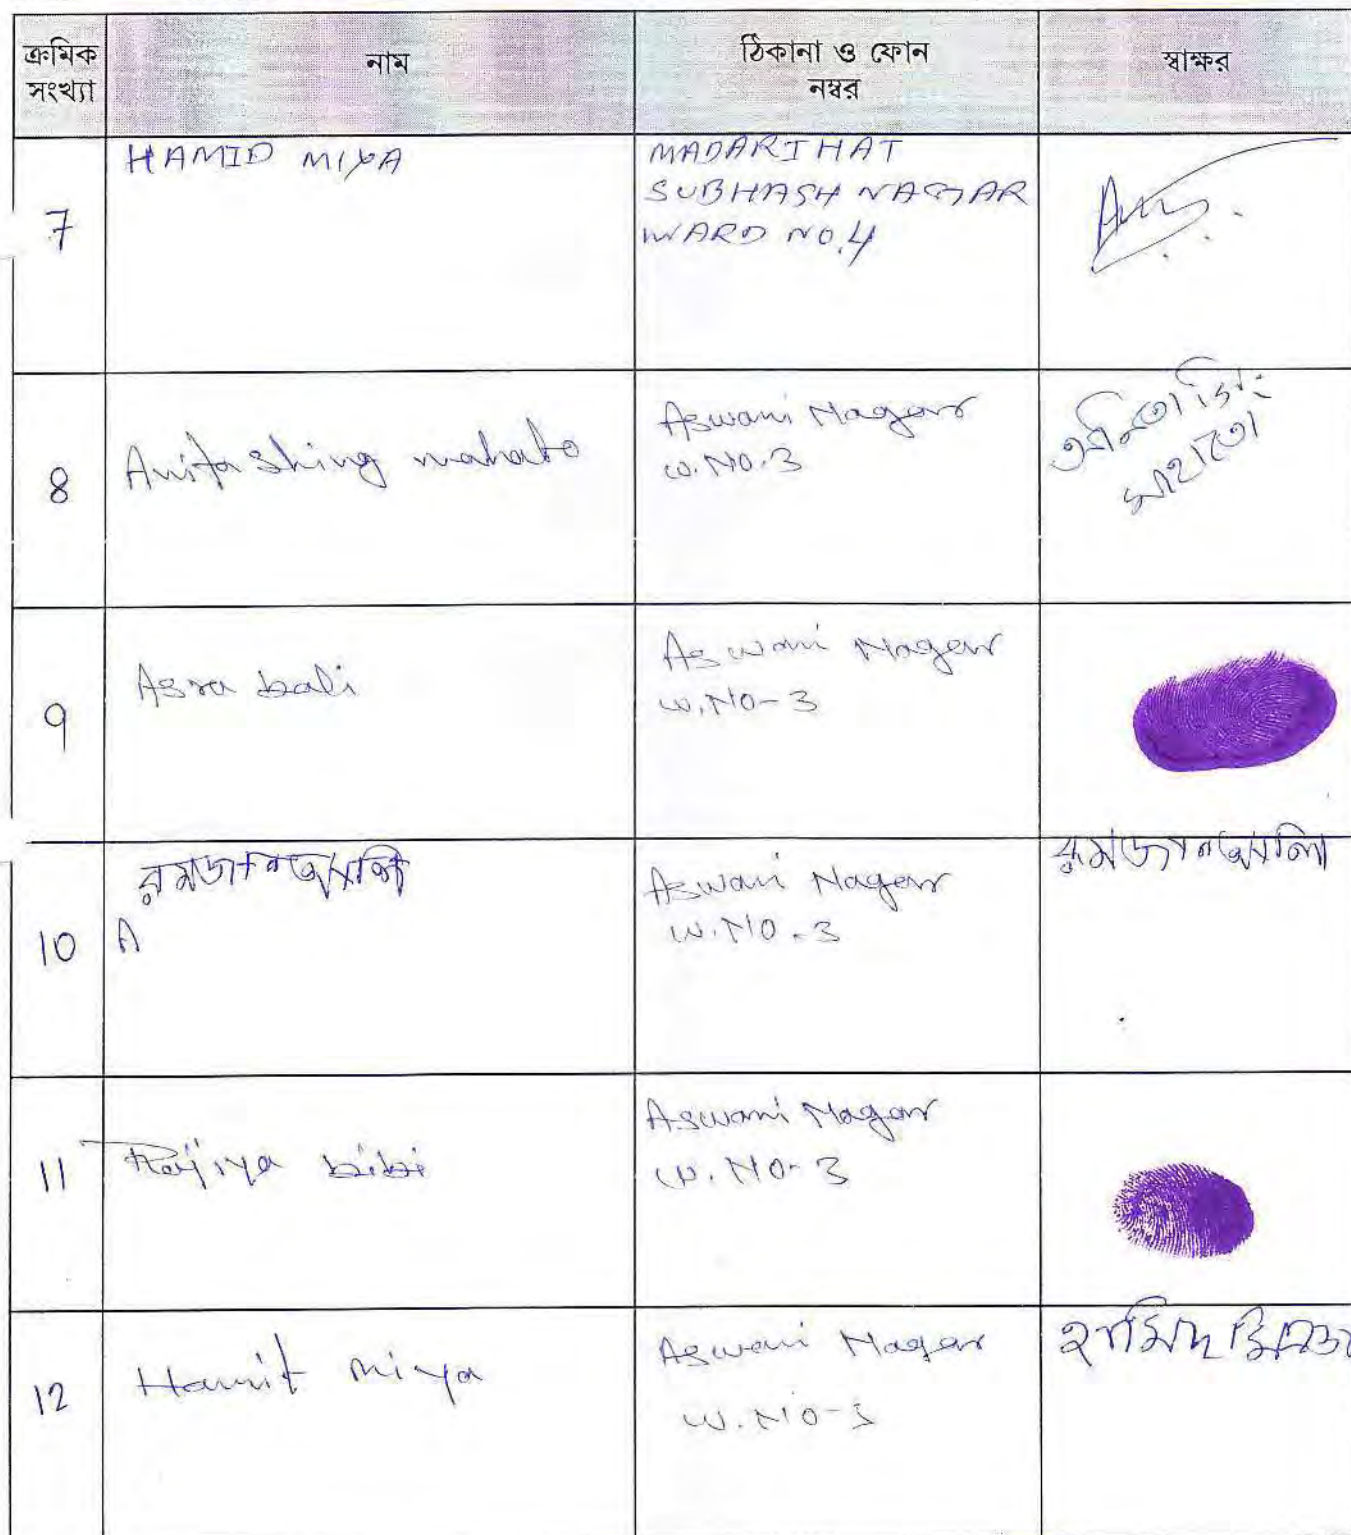 ক্রমিক সংখ্যা নাম ঠিকানা ও ফোন নম্বর স্বাক্ষর
7 HAMID MIYA MADARIHAT
SUBHASH NAGAR
WARD NO.4
8 Anita Shing mahato Aswani Nagar অনিতা সিং
W.NO.3 মাহাতো
9 Asra bali Aswani Nagar
W.NO-3
10 রমজান আলি Aswani Nagar রমজান আলি
A W.NO.3
11 Rejiya bibi Aswani Nagar
W.NO-3
12 Hamit miya Aswani Nagar হামিদ মিঞা
W.NO-3